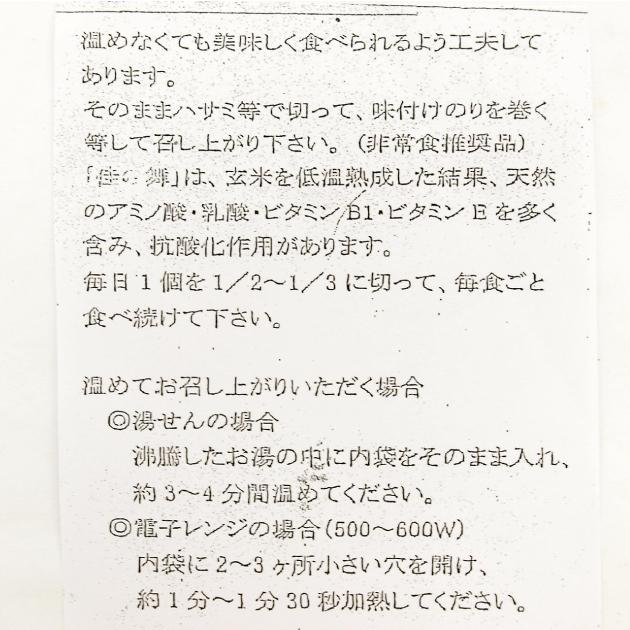 温めなくても美味しく食べられるよう工夫して
あります。
そのままハサミ等で切って、味付けのりを巻く
等して召し上がり下さい。(非常食推奨品)
「佳の舞」は、玄米を低温熟成した結果、天然
のアミノ酸・乳酸・ビタミンB1・ビタミンEを多く
含み、抗酸化作用があります。
毎日1個を1/2〜1/3に切って、毎食ごと
食べ続けて下さい。
温めてお召し上がりいただく場合
◎湯せんの場合
沸騰したお湯の中に内袋をそのまま入れ、
約3〜4分間温めてください。
◎電子レンジの場合(500〜600W)
内袋に2〜3ヶ所小さい穴を開け、
約1分〜1分30秒加熱してください。